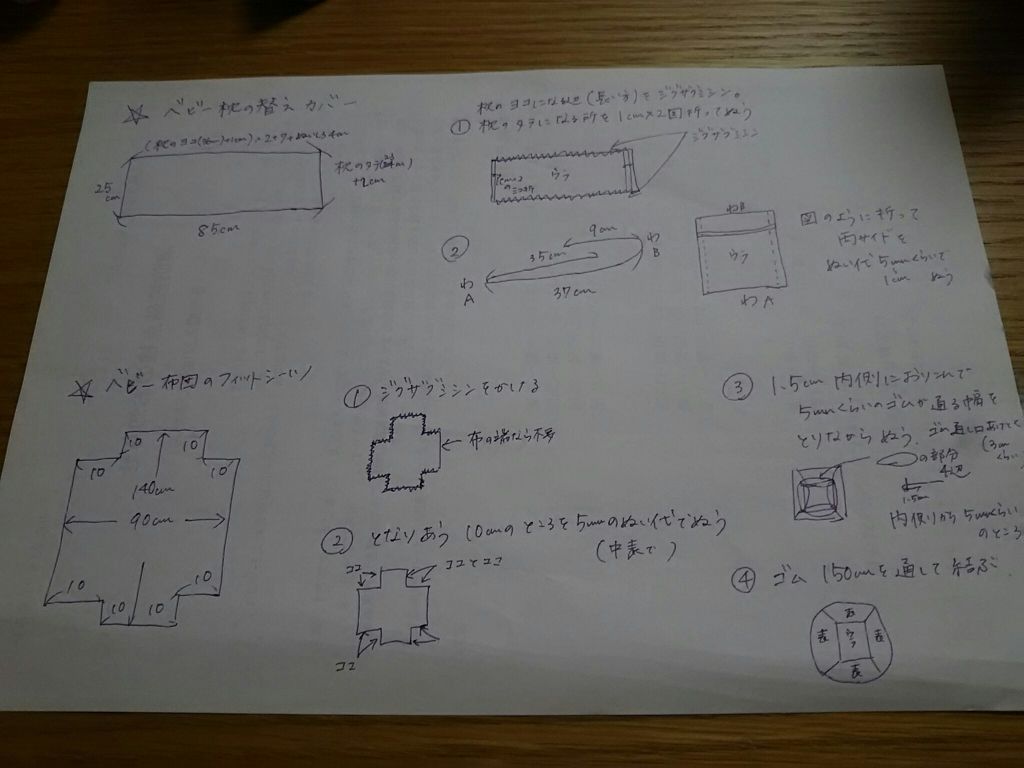 ☆ ベビー枕の替えカバー
(枕のヨコ
枕のタテ
+2cm
25
cm
85cm
枕のヨコになる辺(長い方)をジグザグミシン。
① 枕のタテになる所を1cm×2回折ってぬう
ジグザグミシン
ウラ
②
9cm
35cm
37cm
わ
A
わ
B
わB
ウラ
わA
図のように折って
両サイドを
ぬい代5mmくらいで
1cm ぬう
☆ ベビー布団のフィットシーツ
10 10
10 10
140cm
90cm
10 10
10 10
① ジグザグミシンをかける
布の端なら不要
② となりあう10cmのところを5mmのぬい代でぬう
(中表で)
ココ
ココとココ
ココ
③ 1.5cm 内側におりこんで
5mmくらいのゴムが通る幅を
とりながらぬう。ゴム通し口あけとく
(3cm
くらい
の部分
4辺
1.5cm
内側から5mmくらい
のところ
④ ゴム150cmを通して結ぶ。
表
表 ウラ 表
表